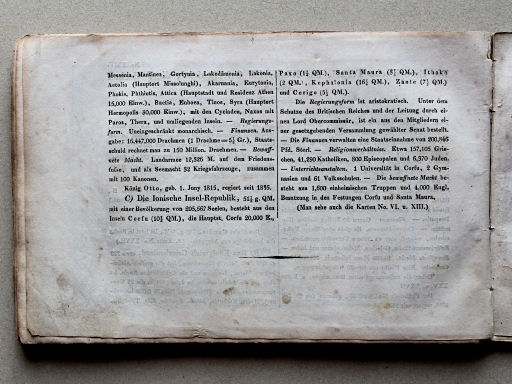 Messenia, Mantinea, Gortynia, Lakedämonia, Lakonia,
Aetolia (Hauptort Missolunghi), Akarnania, Eurytania,
Phokis, Phthiotis, Attica (Hauptstadt und Residenz Athen
15,000 Einw.), Boetia, Euboea, Tinos, Syra (Hauptort
Hermopolis 30,000 Einw.), mit den Cycladen, Naxos mit
Paros, Thera, und umliegenden Inseln. — Regierungs-
form. Uneingeschränkt monarchisch. — Finanzen. Aus-
gabe: 16,447,000 Drachmen (1 Drachme = 5⅓ Gr.), Staats-
schuld rechnet man zu 150 Million. Drachmen. — Bewaff-
nete Macht. Landarmee 12,526 M. auf dem Friedens-
fusse, und als Seemacht 32 Kriegsfahrzeuge, zusammen
mit 100 Kanonen.
König Otto, geb. 1. Juny 1815, regiert seit 1835.
C) Die Ionische Insel-Republik, 51½ g. QM.
mit einer Bevölkerung von 205,567 Seelen, besteht aus den
Inseln Corfu (10¾ QM.), die Hauptst. Corfu 20,000 E.,
Paxo (1¼ QM.), Santa Maura (8½ QM.), Ithaka
(2 QM.), Kephalonia (16½ QM.), Zante (7½ QM.)
und Cerigo (5½ QM.).
Die Regierungsform ist aristokratisch. Unter dem
Schutze des Britischen Reiches und der Leitung durch ei-
nen Lord Obercommissair, ist ein aus den Mitgliedern ei-
ner gesetzgebenden Versammlung gewählter Senat bestellt.
— Die Finanzen verwalten eine Staatseinnahme von 200,846
Pfd. Sterl. — Religionsverhältniss. Etwa 157,105 Grie-
chen, 41,290 Katholiken, 800 Episcopalen und 6,370 Juden.
— Unterrichtsanstalten. 1 Universität in Corfu, 2 Gym-
nasien und 61 Volksschulen. — Die bewaffnete Macht be-
steht aus 1,600 einheimischen Truppen und 4,000 Engl.
Besatzung in den Festungen Corfu und Santa Maura.
(Man sehe auch die Karten No. VI. u. XIII.)